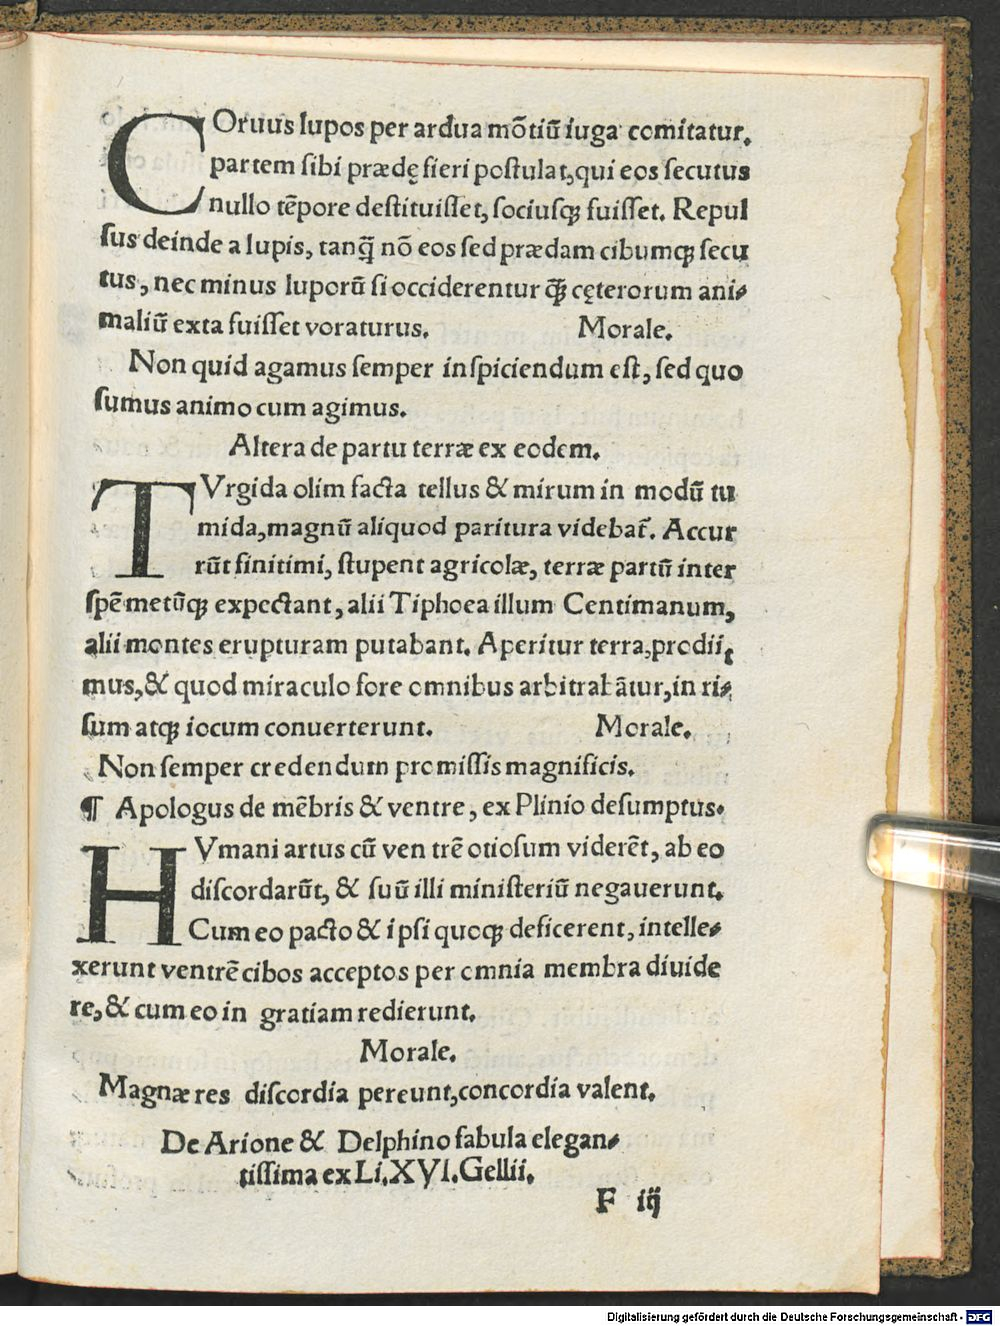 COruus lupos per ardua mõtiũ iuga comitatur.
partem sibi prædę fieri postulat, qui eos secutus
nullo tẽpore destituisset, sociusqꝫ fuisset. Repul
sus deinde a lupis, tanq̃ nõ eos sed prædam cibumqꝫ secu
tus, nec minus luporũ si occiderentur q̃ cęterorum ani⸗
maliũ exta fuisset voraturus. Morale.
Non quid agamus semper inspiciendum est, sed quo
sumus animo cum agimus.
Altera de partu terræ ex eodem.
TVrgida olim facta tellus & mirum in modũ tu
mida, magnũ aliquod paritura videbat̃. Accur
rũt finitimi, stupent agricolæ, terræ partũ inter
spẽ metũqꝫ expectant, alii Tiphoea illum Centimanum,
alii montes erupturam putabant. Aperitur terra, prodiit
mus, & quod miraculo fore omnibus arbitrabãtur, in ri⸗
sum atqꝫ iocum conuerterunt. Morale.
Non semper credendum promissis magnificis.
¶ Apologus de mẽbris & ventre, ex Plinio desumptus.
HVmani artus cũ ventrẽ otiosum viderẽt, ab eo
discordarũt, & suũ illi ministeriũ negauerunt.
Cum eo pacto & ipsi quoqꝫ deficerent, intelle⸗
xerunt ventrẽ cibos acceptos per omnia membra diuide
re, & cum eo in gratiam redierunt.
Morale.
Magnæ res discordia pereunt, concordia valent.
De Arione & Delphino fabula elegan⸗
tissima ex Li. XVI. Gellii.
F iij
Digitalisierung gefördert durch die Deutsche Forschungsgemeinschaft - DFG